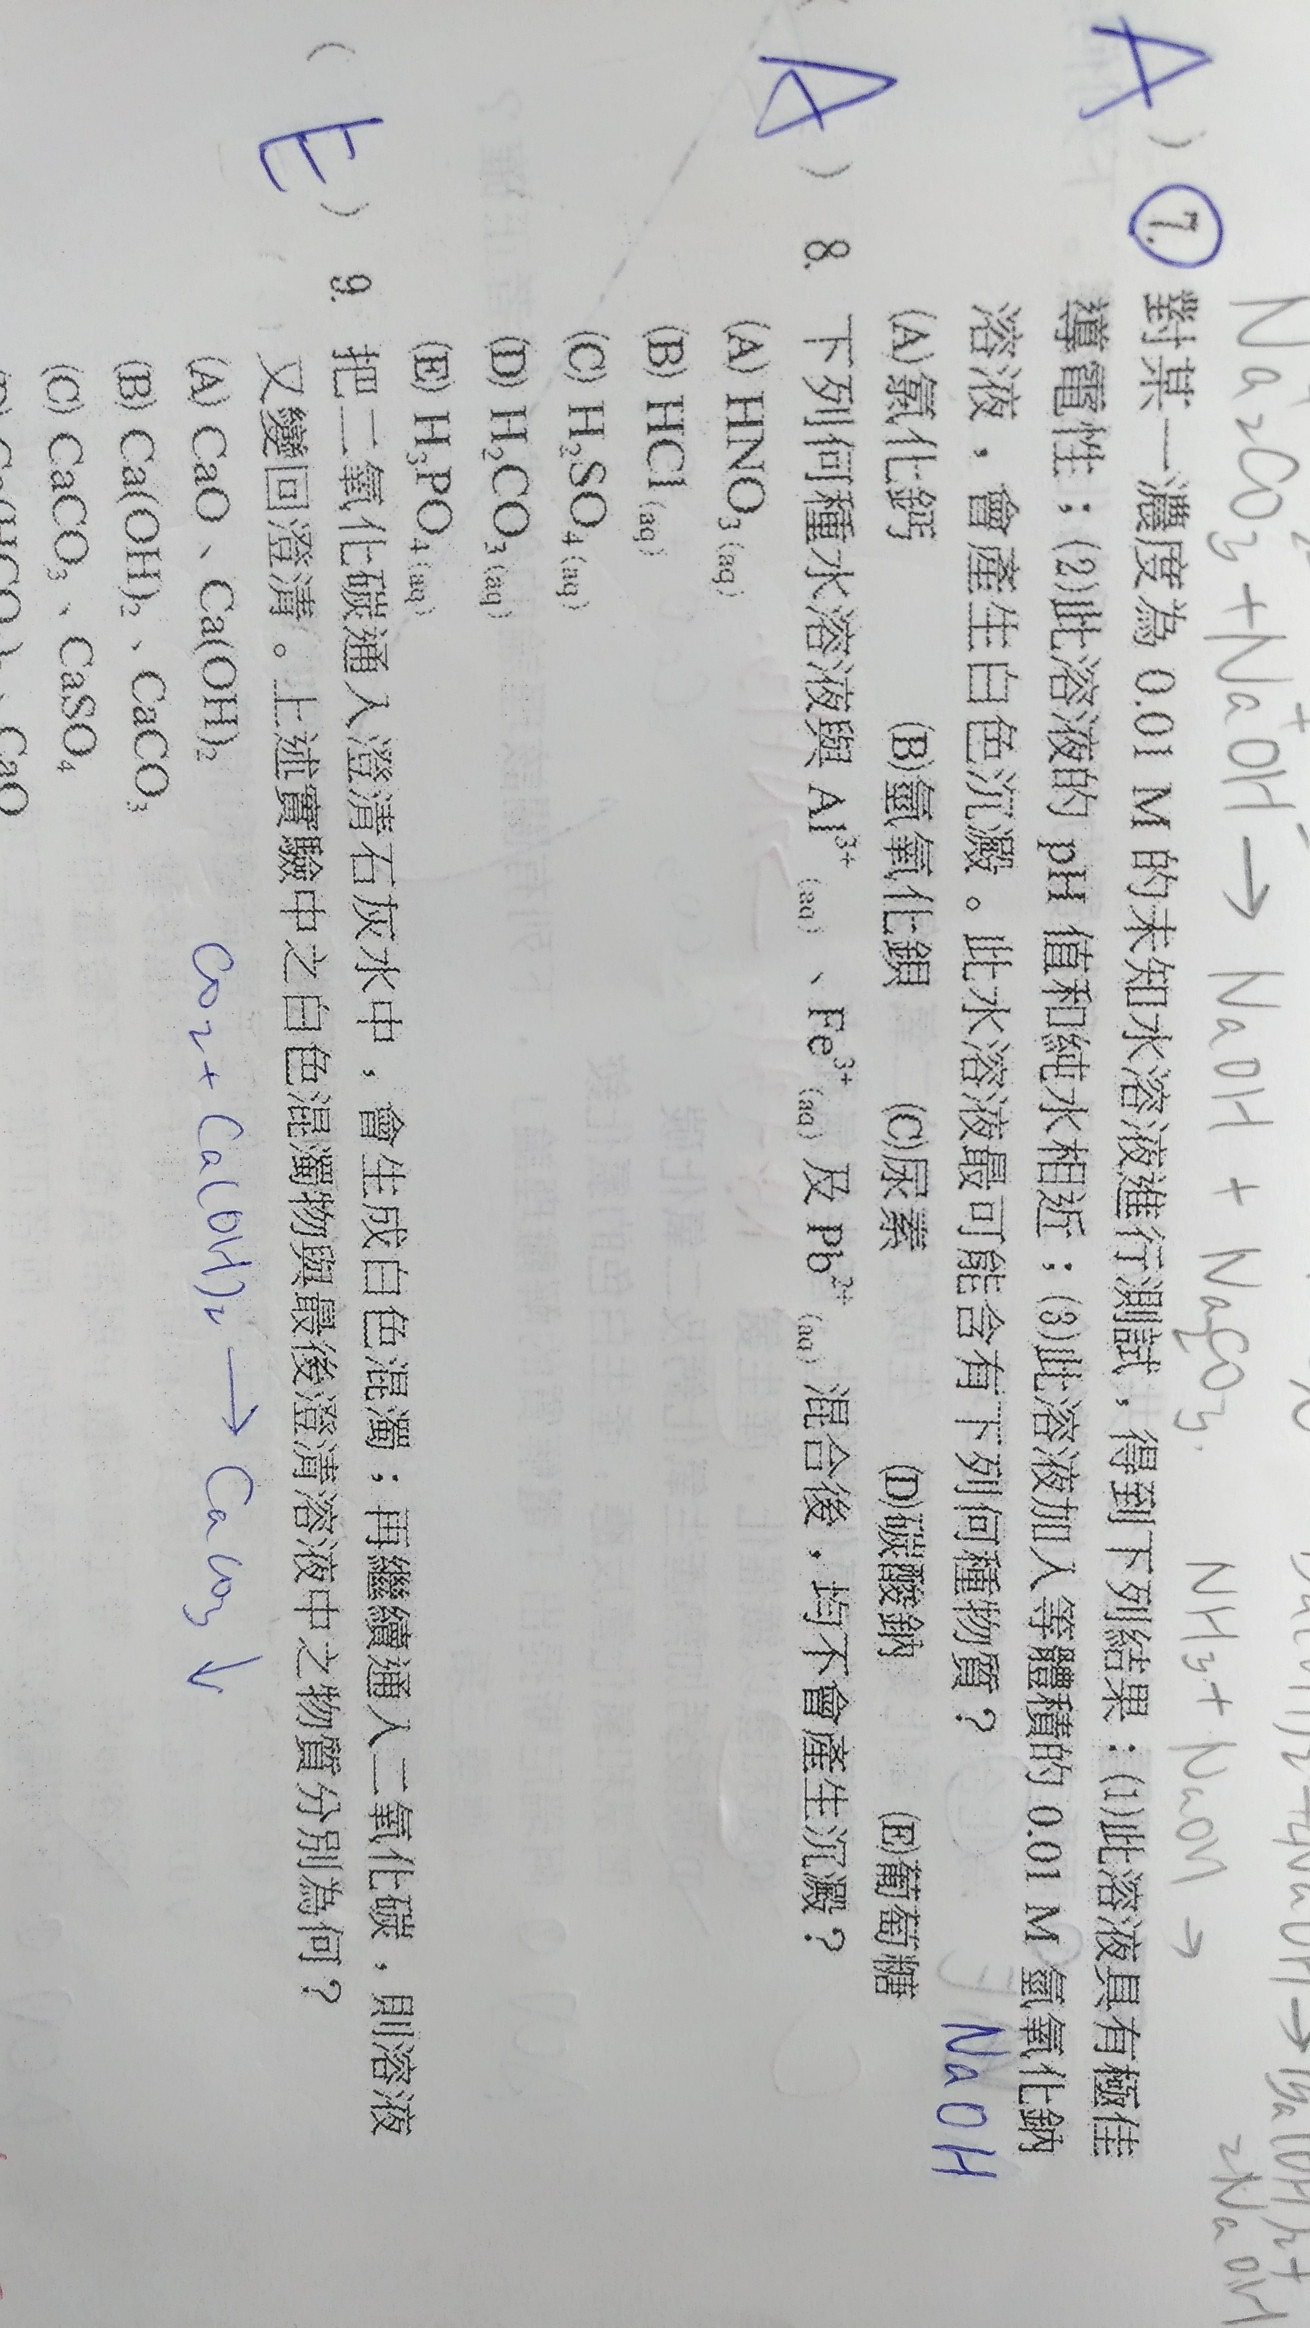 Na₂CO₃ + Na⁺OH⁻ → NaOH + Na₂CO₃.
NH₃ + NaOH →
2NaOH
A ) 7. 對某一濃度為 0.01 M 的未知水溶液進行測試，得到下列結果：(1)此溶液具有極佳
導電性；(2)此溶液的 pH 值和純水相近；(3)此溶液加入等體積的 0.01 M 氫氧化鈉
溶液，會產生白色沉澱。此水溶液最可能含有下列何種物質？ NaOH
(A)氯化鈣 (B)氫氧化鋇 (C)尿素 (D)碳酸鈉 (E)葡萄糖
( A ) 8. 下列何種水溶液與 Al³⁺(aq)、Fe³⁺(aq)及 Pb²⁺(aq)混合後，均不會產生沉澱？
(A) HNO₃(aq)
(B) HCl(aq)
(C) H₂SO₄(aq)
(D) H₂CO₃(aq)
(E) H₃PO₄(aq)
( E ) 9. 把二氧化碳通入澄清石灰水中，會生成白色混濁；再繼續通入二氧化碳，則溶液
又變回澄清。上述實驗中之白色混濁物與最後澄清溶液中之物質分別為何？
(A) CaO、Ca(OH)₂
(B) Ca(OH)₂、CaCO₃
CO₂ + Ca(OH)₂ → CaCO₃↓
(C) CaCO₃、CaSO₄